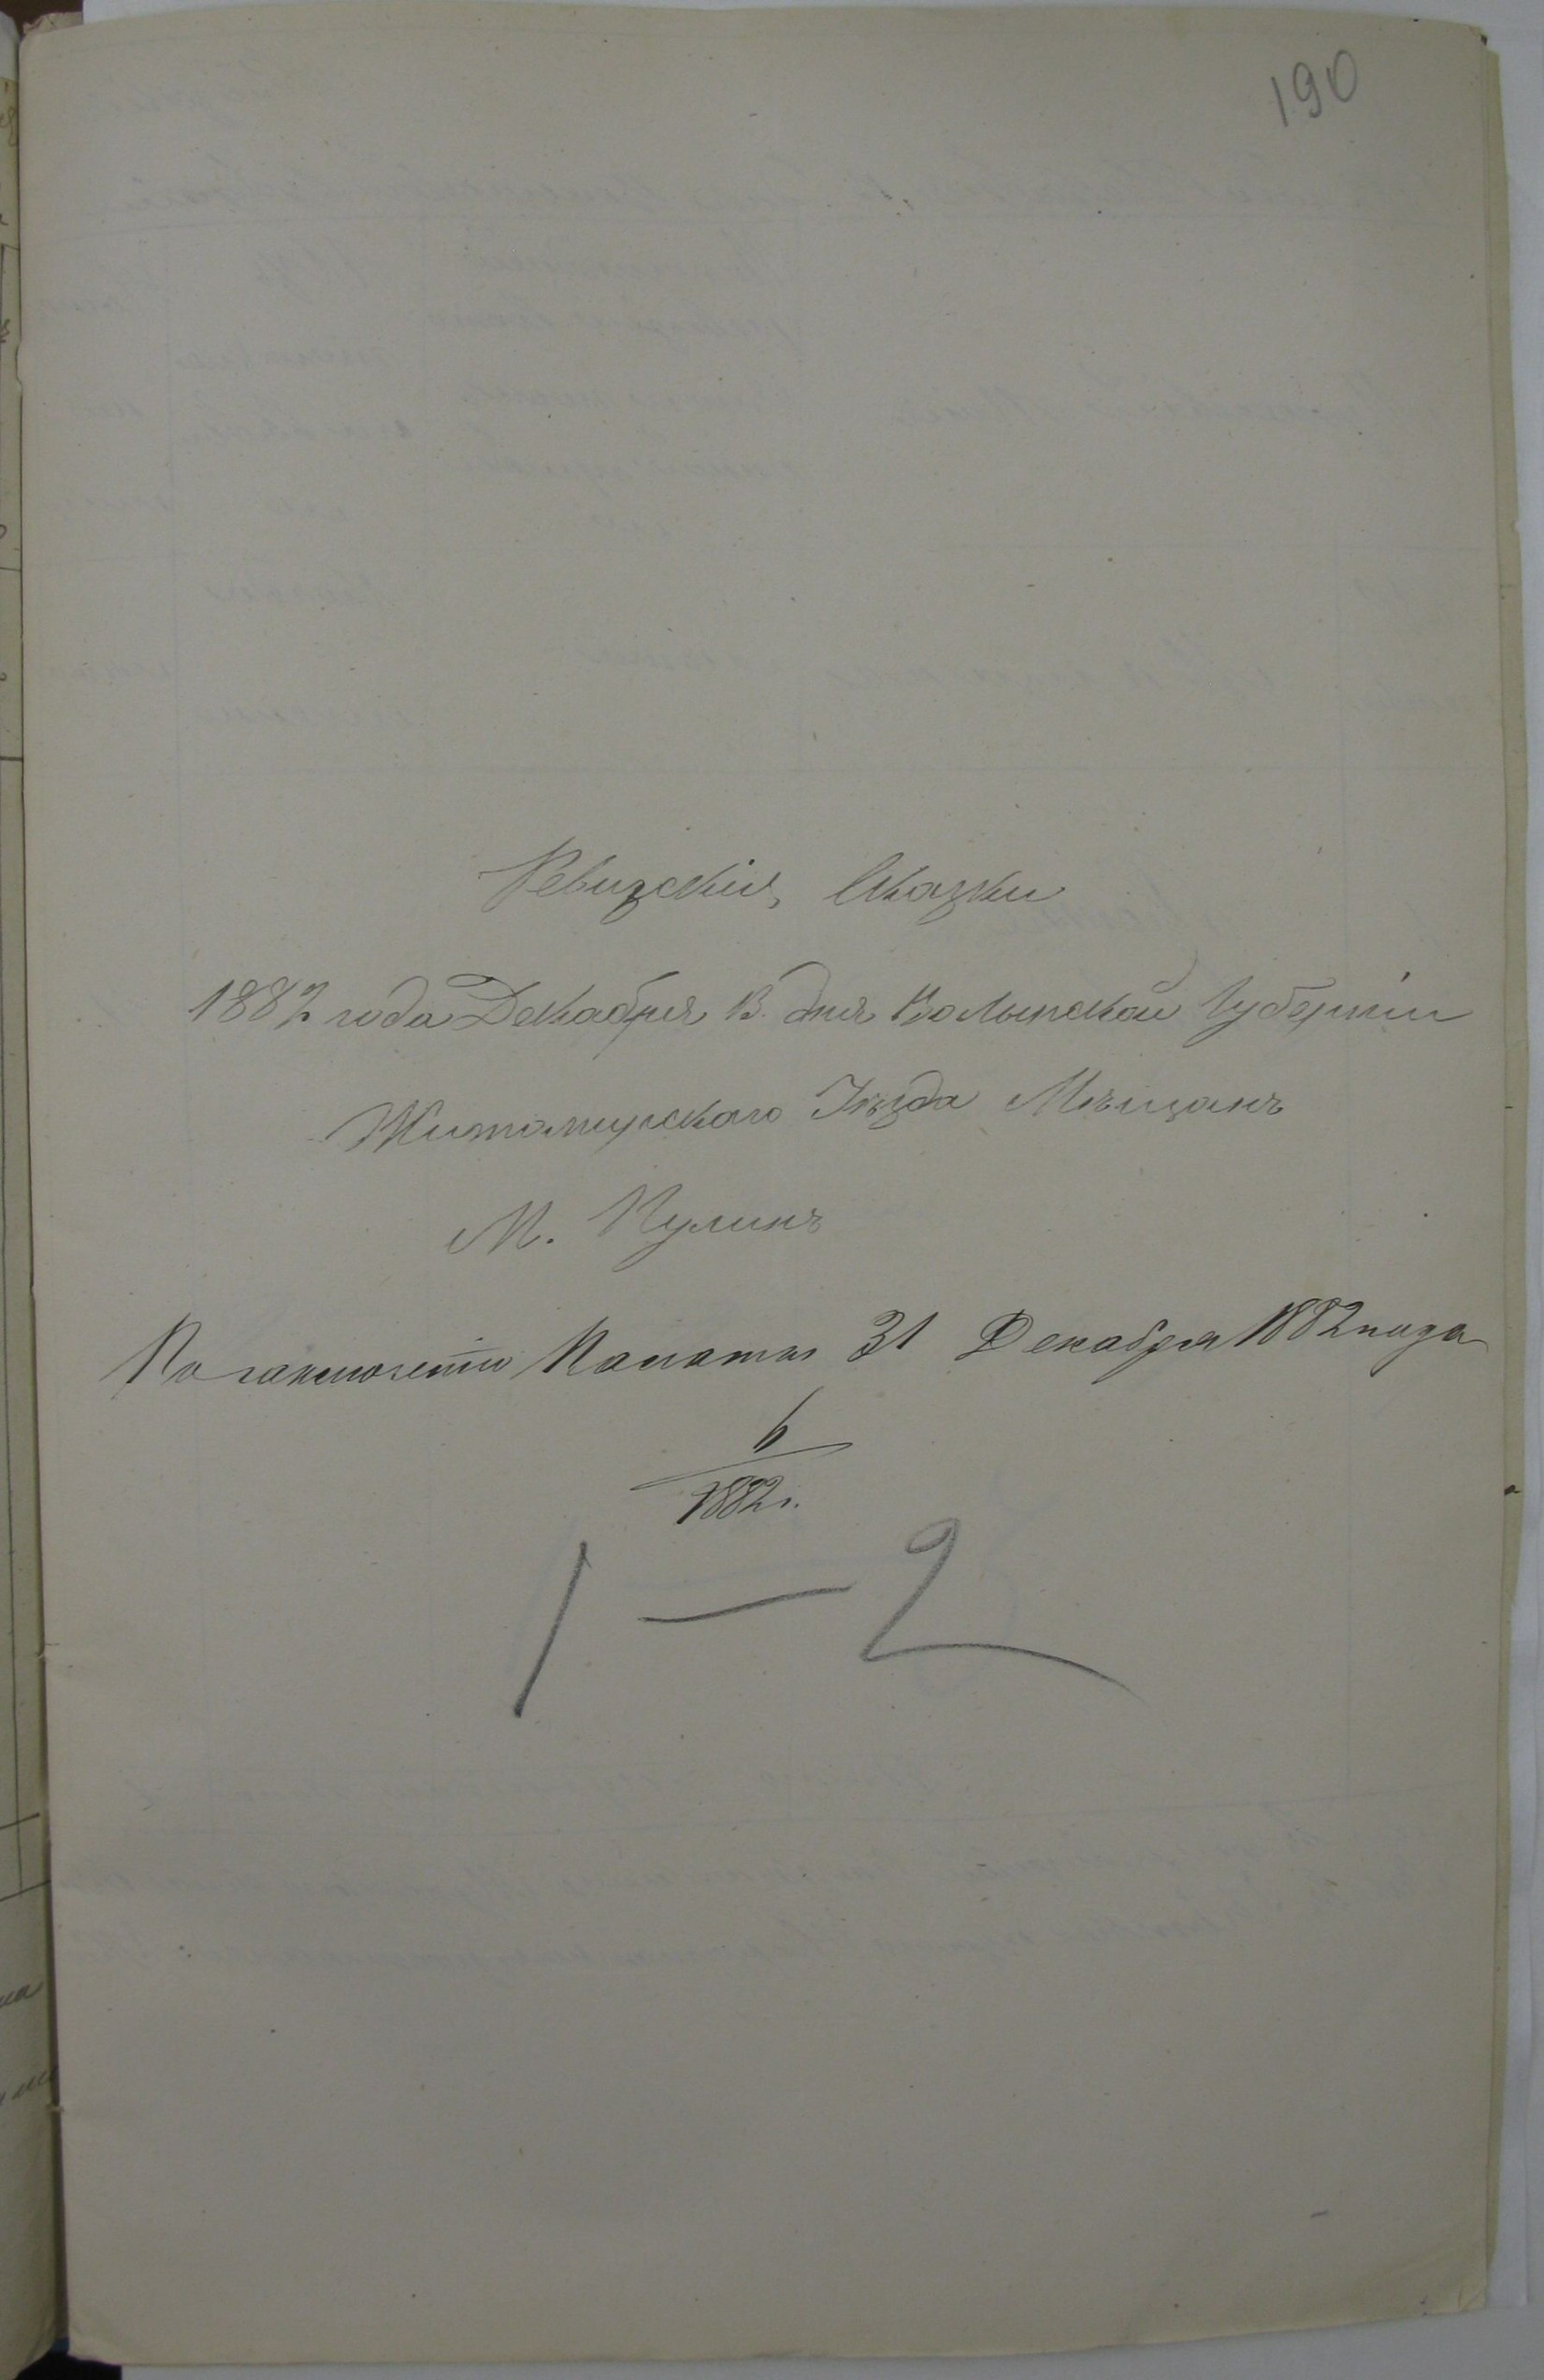 190
Ревизскія Сказки
1882 года Декабря 13. дня Волынской Губерніи
Житомирскаго Уѣзда Мѣщанъ
М. Пулинъ
По заключенію Палаты 31 Декабря 1882 года
6
1882 г.
1 — 2